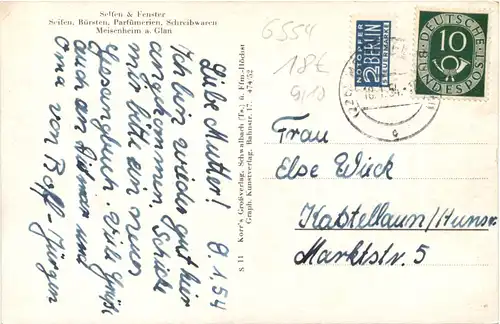 Selfen & Fenster
Seifen, Bürsten, Parfümerien, Schreibwaren
Meisenheim a. Glan
8.1.54
Liebe Mutter!
Ich bin wieder gut hier
angekommen, Schicke
mir bitte ein neues
Gesangbuch. Viele Grüße
auch an Dietmar und
Oma von Jürgen
S 11 Korr's Großverlag, Schwalbach (Ts.) ü. Ffm.-Höchst
Graph. Kunstverlag, Bahnstr. 17 474/52
6554
18€
9/10
NOTOPFER
2 BERLIN
STEUERMARKE
DEUTSCHE
BUNDESPOST
10
Frau
Else Wück
Kastellaun/Hunsr.
Marktstr. 5